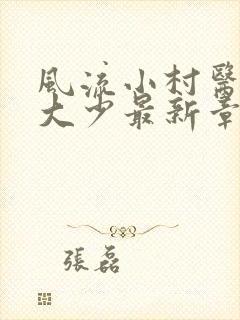 風流小村醫
大少最新章
張磊